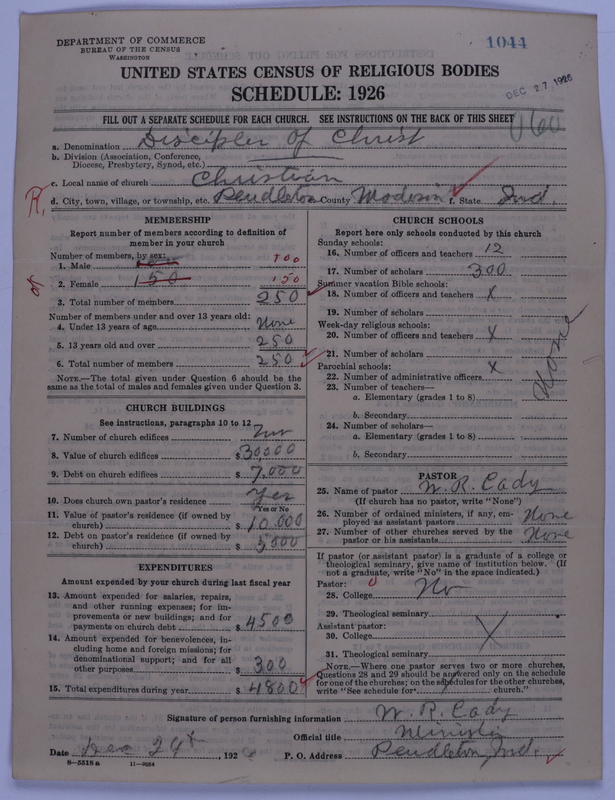 DEPARTMENT OF COMMERCE
BUREAU OF THE CENSUS
WASHINGTON
1044
UNITED STATES CENSUS OF RELIGIOUS BODIES
SCHEDULE: 1926
DEC 27 1926
FILL OUT A SEPARATE SCHEDULE FOR EACH CHURCH. SEE INSTRUCTIONS ON THE BACK OF THIS SHEET
060
a. Denomination Disciples of Christ
b. Division (Association, Conference, Diocese, Presbytery, Synod, etc.)
c. Local name of church Christian
R.
d. City, town, village, or township, etc. Pendleton County Madison f. State Ind.
MEMBERSHIP
Report number of members according to definition of member in your church
Number of members, by sex:
1. Male 100 100
2. Female 150 150
3. Total number of members 250
Number of members under and over 13 years old:
4. Under 13 years of age None
5. 13 years old and over 250
6. Total number of members 250
NOTE.—The total given under Question 6 should be the same as the total of males and females given under Question 3.
CHURCH BUILDINGS
See instructions, paragraphs 10 to 12
7. Number of church edifices
8. Value of church edifices $30,000
9. Debt on church edifices $7,000
10. Does church own pastor's residence Yes
Yes or No
11. Value of pastor's residence (if owned by church) $10,000
12. Debt on pastor's residence (if owned by church) $5000
EXPENDITURES
Amount expended by your church during last fiscal year
13. Amount expended for salaries, repairs, and other running expenses; for improvements or new buildings; and for payments on church debt $4500
14. Amount expended for benevolences, including home and foreign missions; for denominational support; and for all other purposes $300
15. Total expenditures during year $4800
CHURCH SCHOOLS
Report here only schools conducted by this church
Sunday schools:
16. Number of officers and teachers 12
17. Number of scholars 300
Summer vacation Bible schools:
18. Number of officers and teachers X
19. Number of scholars
Week-day religious schools:
20. Number of officers and teachers X
21. Number of scholars
Parochial schools: X
22. Number of administrative officers
23. Number of teachers—
a. Elementary (grades 1 to 8)
b. Secondary
24. Number of scholars—
a. Elementary (grades 1 to 8)
b. Secondary
None
PASTOR
25. Name of pastor W. R. Cady
(If church has no pastor, write "None")
26. Number of ordained ministers, if any, employed as assistant pastors None
27. Number of other churches served by the pastor or his assistants None
If pastor (or assistant pastor) is a graduate of a college or theological seminary, give name of institution below. (If not a graduate, write "No" in the space indicated.)
Pastor:
28. College No
29. Theological seminary
Assistant pastor:
30. College X
31. Theological seminary
NOTE.—Where one pastor serves two or more churches, Questions 28 and 29 should be answered only on the schedule for one of the churches; on the schedules for the other churches, write "See schedule for church."
Signature of person furnishing information W. R. Cady
Official title Minister
Date Dec 24th, 192
P. O. Address Pendleton, Ind.
8—5518a 11—9284